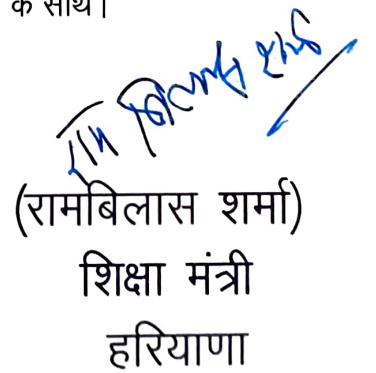 के साथ।
राम बिलास शर्मा
(रामबिलास शर्मा)
शिक्षा मंत्री
हरियाणा